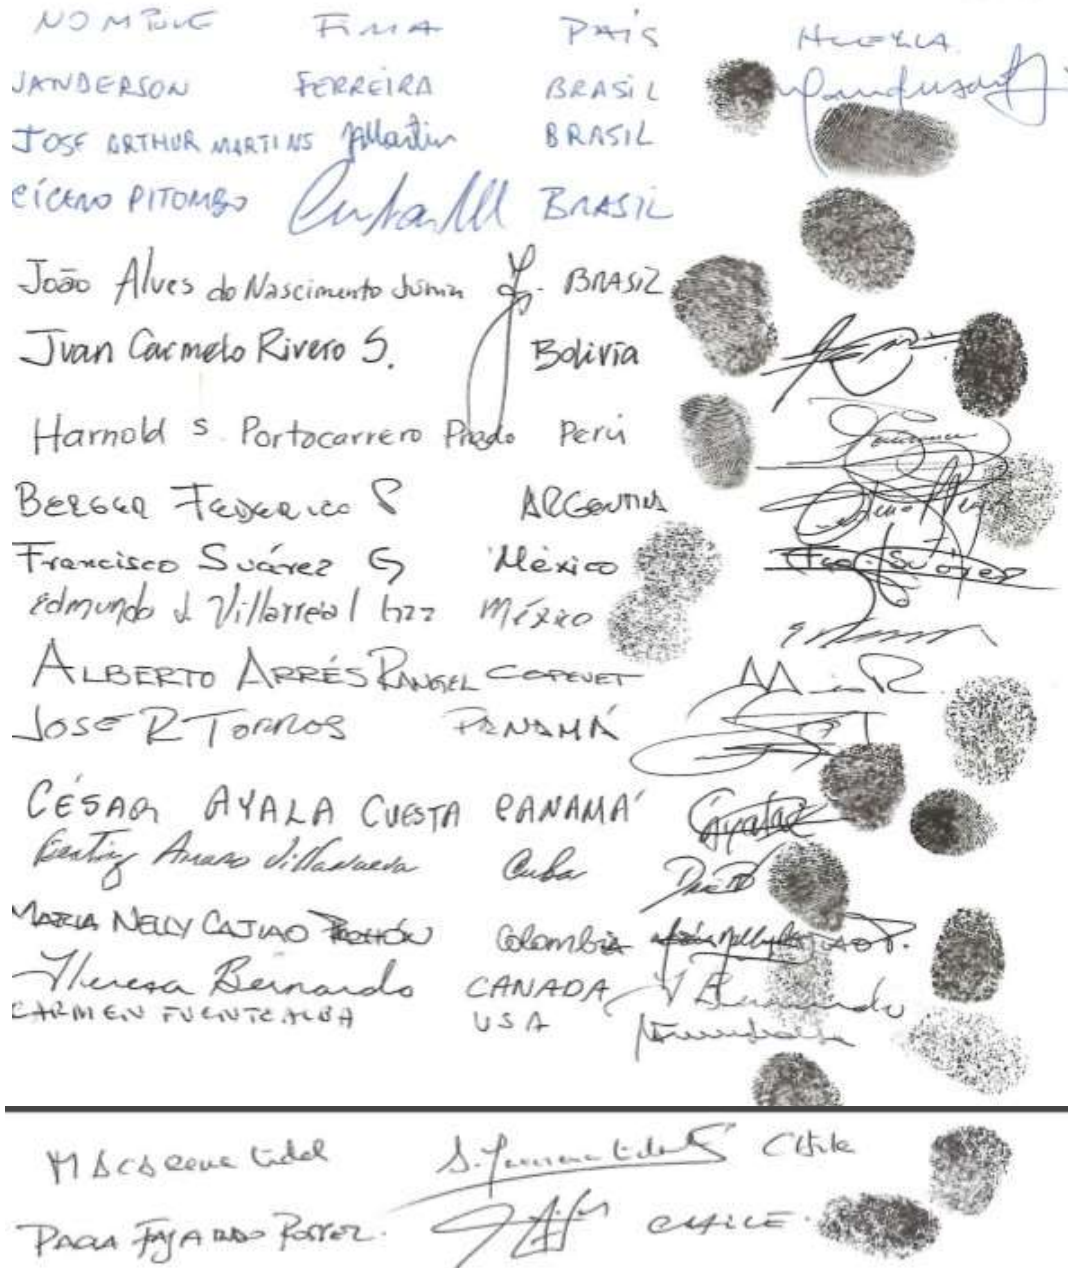 NOMBRE FIRMA PAÍS HUELLA
JANDERSON FERREIRA BRASIL
JOSE ARTHUR MARTINS JAMartins BRASIL
CÍCERO PITOMBO BRASIL
João Alves do Nascimento Júnior BRASIL
Juan Carmelo Rivero S. Bolivia
Harnold S. Portocarrero Prado Perú
BERGER FEDERICO ARGENTINA
Francisco Suárez G México Fco. Suárez
Edmundo J. Villarreal México
ALBERTO ARRÉS RANGEL
JOSE R TORRES PANAMÁ
CÉSAR AYALA CUESTA PANAMÁ CAyalaC
Amaro Villanueva Cuba
MARIA NELLY CATIAO Colombia María Nelly
Theresa Bernardo CANADA T Bernardo
CARMEN FUENTEALBA USA
Macarena Vidal Chile
PAOLA FAJARDO CHILE.